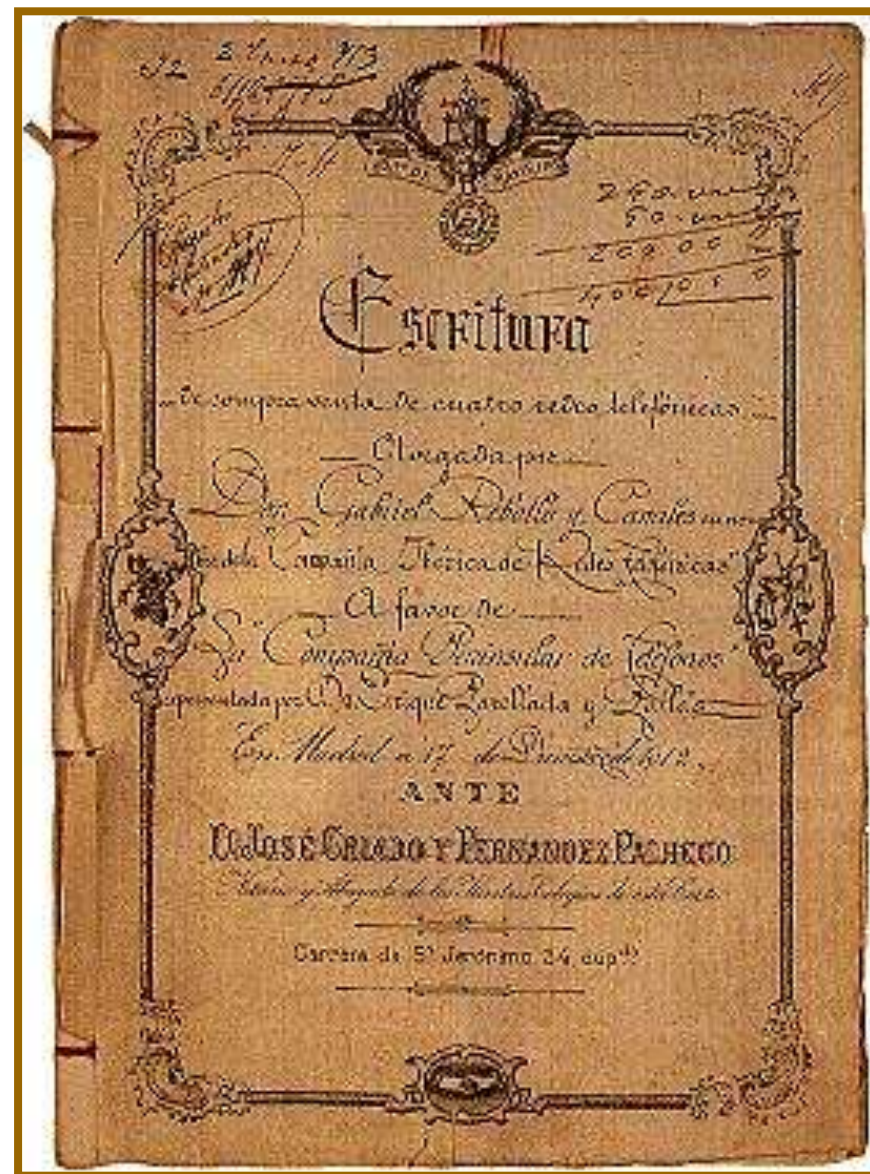 2 Enero 913
Escritura
de compra venta de cuatro redes telefónicas
Otorgada por
Don Gabriel Rebollo y Canales
de la "Compañía Ibérica de Redes telefónicas"
A favor de
La "Compañía Peninsular de Teléfonos"
representada por D. Enrique Parellada y Pallás
En Madrid a 17 de Diciembre de 1912.
ANTE
D. JOSÉ CRIADO Y FERNANDEZ PACHECO
Notario y Abogado de los Ilustres Colegios de esta Corte
Carrera de Sn Jerónimo 34, dupdo